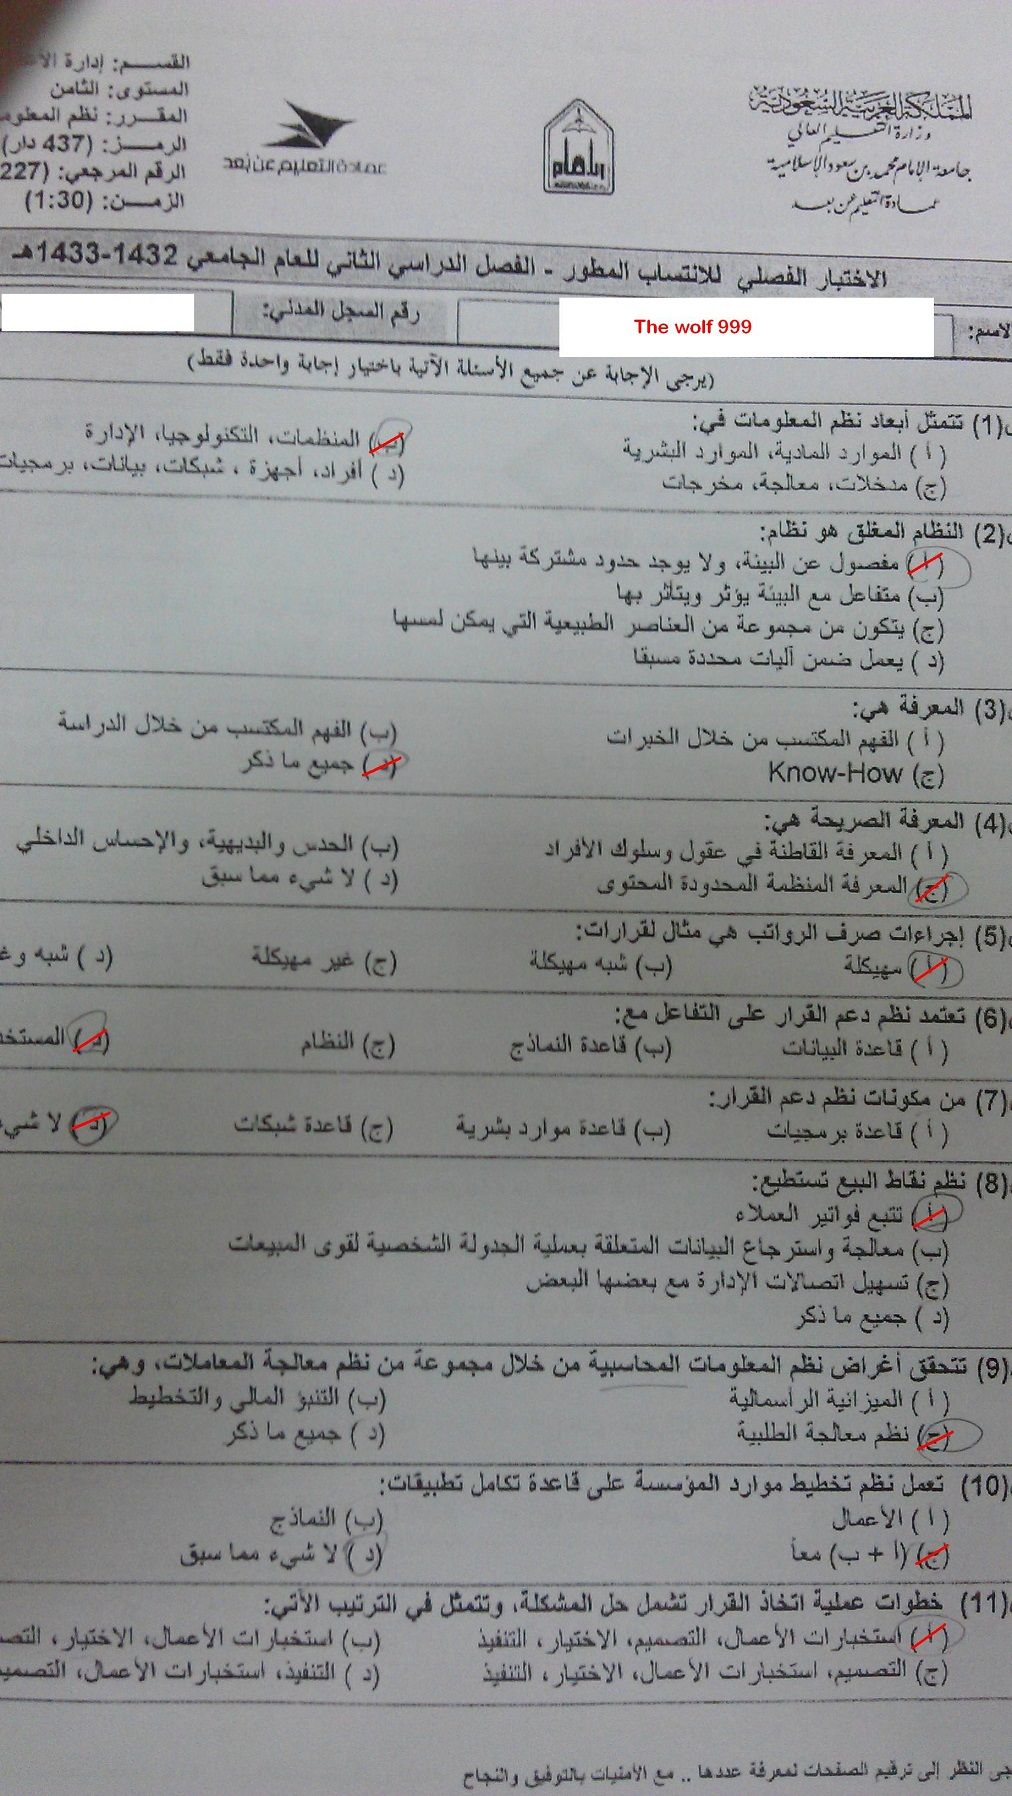 المملكة العربية السعودية
وزارة التعليم العالي
جامعة الإمام محمد بن سعود الإسلامية
عمادة التعليم عن بعد
عمادة التعليم عن بعد
القسم: إدارة
المستوى: الثامن
المقرر: نظم
الرمز: (437 دار)
الرقم المرجعي: (227
الزمن: (1:30)
الاختبار الفصلي للانتساب المطور - الفصل الدراسي الثاني للعام الجامعي 1432-1433هـ
الاسم: The wolf 999 رقم السجل المدني:
(يرجى الإجابة عن جميع الأسئلة الآتية باختيار إجابة واحدة فقط)
(1) تتمثل أبعاد نظم المعلومات في:
( أ ) الموارد المادية، الموارد البشرية (ب) المنظمات، التكنولوجيا، الإدارة
(ج) مدخلات، معالجة، مخرجات (د ) أفراد، أجهزة ، شبكات، بيانات، برمجيات
(2) النظام المغلق هو نظام:
( أ ) مفصول عن البيئة، ولا يوجد حدود مشتركة بينها
(ب) متفاعل مع البيئة يؤثر ويتأثر بها
(ج) يتكون من مجموعة من العناصر الطبيعية التي يمكن لمسها
(د ) يعمل ضمن آليات محددة مسبقا
(3) المعرفة هي:
( أ ) الفهم المكتسب من خلال الخبرات (ب) الفهم المكتسب من خلال الدراسة
(ج) Know-How (د ) جميع ما ذكر
(4) المعرفة الصريحة هي:
( أ ) المعرفة القاطنة في عقول وسلوك الأفراد (ب) الحدس والبديهية، والإحساس الداخلي
(ج) المعرفة المنظمة المحدودة المحتوى (د ) لا شيء مما سبق
(5) إجراءات صرف الرواتب هي مثال لقرارات:
( أ ) مهيكلة (ب) شبه مهيكلة (ج) غير مهيكلة (د ) شبه
(6) تعتمد نظم دعم القرار على التفاعل مع:
( أ ) قاعدة البيانات (ب) قاعدة النماذج (ج) النظام (د )
(7) من مكونات نظم دعم القرار:
( أ ) قاعدة برمجيات (ب) قاعدة موارد بشرية (ج) قاعدة شبكات (د ) لا
(8) نظم نقاط البيع تستطيع:
( أ ) تتبع فواتير العملاء
(ب) معالجة واسترجاع البيانات المتعلقة بعملية الجدولة الشخصية لقوى المبيعات
(ج) تسهيل اتصالات الإدارة مع بعضها البعض
(د ) جميع ما ذكر
(9) تتحقق أغراض نظم المعلومات المحاسبية من خلال مجموعة من نظم معالجة المعاملات، وهي:
( أ ) الميزانية الرأسمالية (ب) التنبؤ المالي والتخطيط
(ج) نظم معالجة الطلبية (د ) جميع ما ذكر
(10) تعمل نظم تخطيط موارد المؤسسة على قاعدة تكامل تطبيقات:
( أ ) الأعمال (ب) النماذج
(ج) (أ + ب) معاً (د ) لا شيء مما سبق
(11) خطوات عملية اتخاذ القرار تشمل حل المشكلة، وتتمثل في الترتيب الآتي:
( أ ) استخبارات الأعمال، التصميم، الاختيار، التنفيذ (ب) استخبارات الأعمال، الاختيار،
(ج) التصميم، استخبارات الأعمال، الاختيار، التنفيذ (د ) التنفيذ، استخبارات الأعمال،
النظر إلى ترقيم الصفحات لمعرفة عددها .. مع الأمنيات بالتوفيق والنجاح